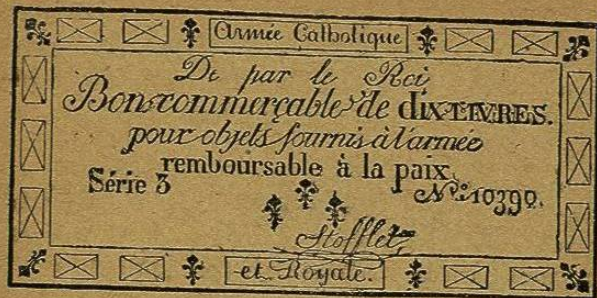 Armée Catholique
De par le Roi
Bon commerçable de DIX LIVRES.
pour objets fournis à l'armée
remboursable à la paix.
Série 3 N.º 10390.
Stofflet
et Royale.